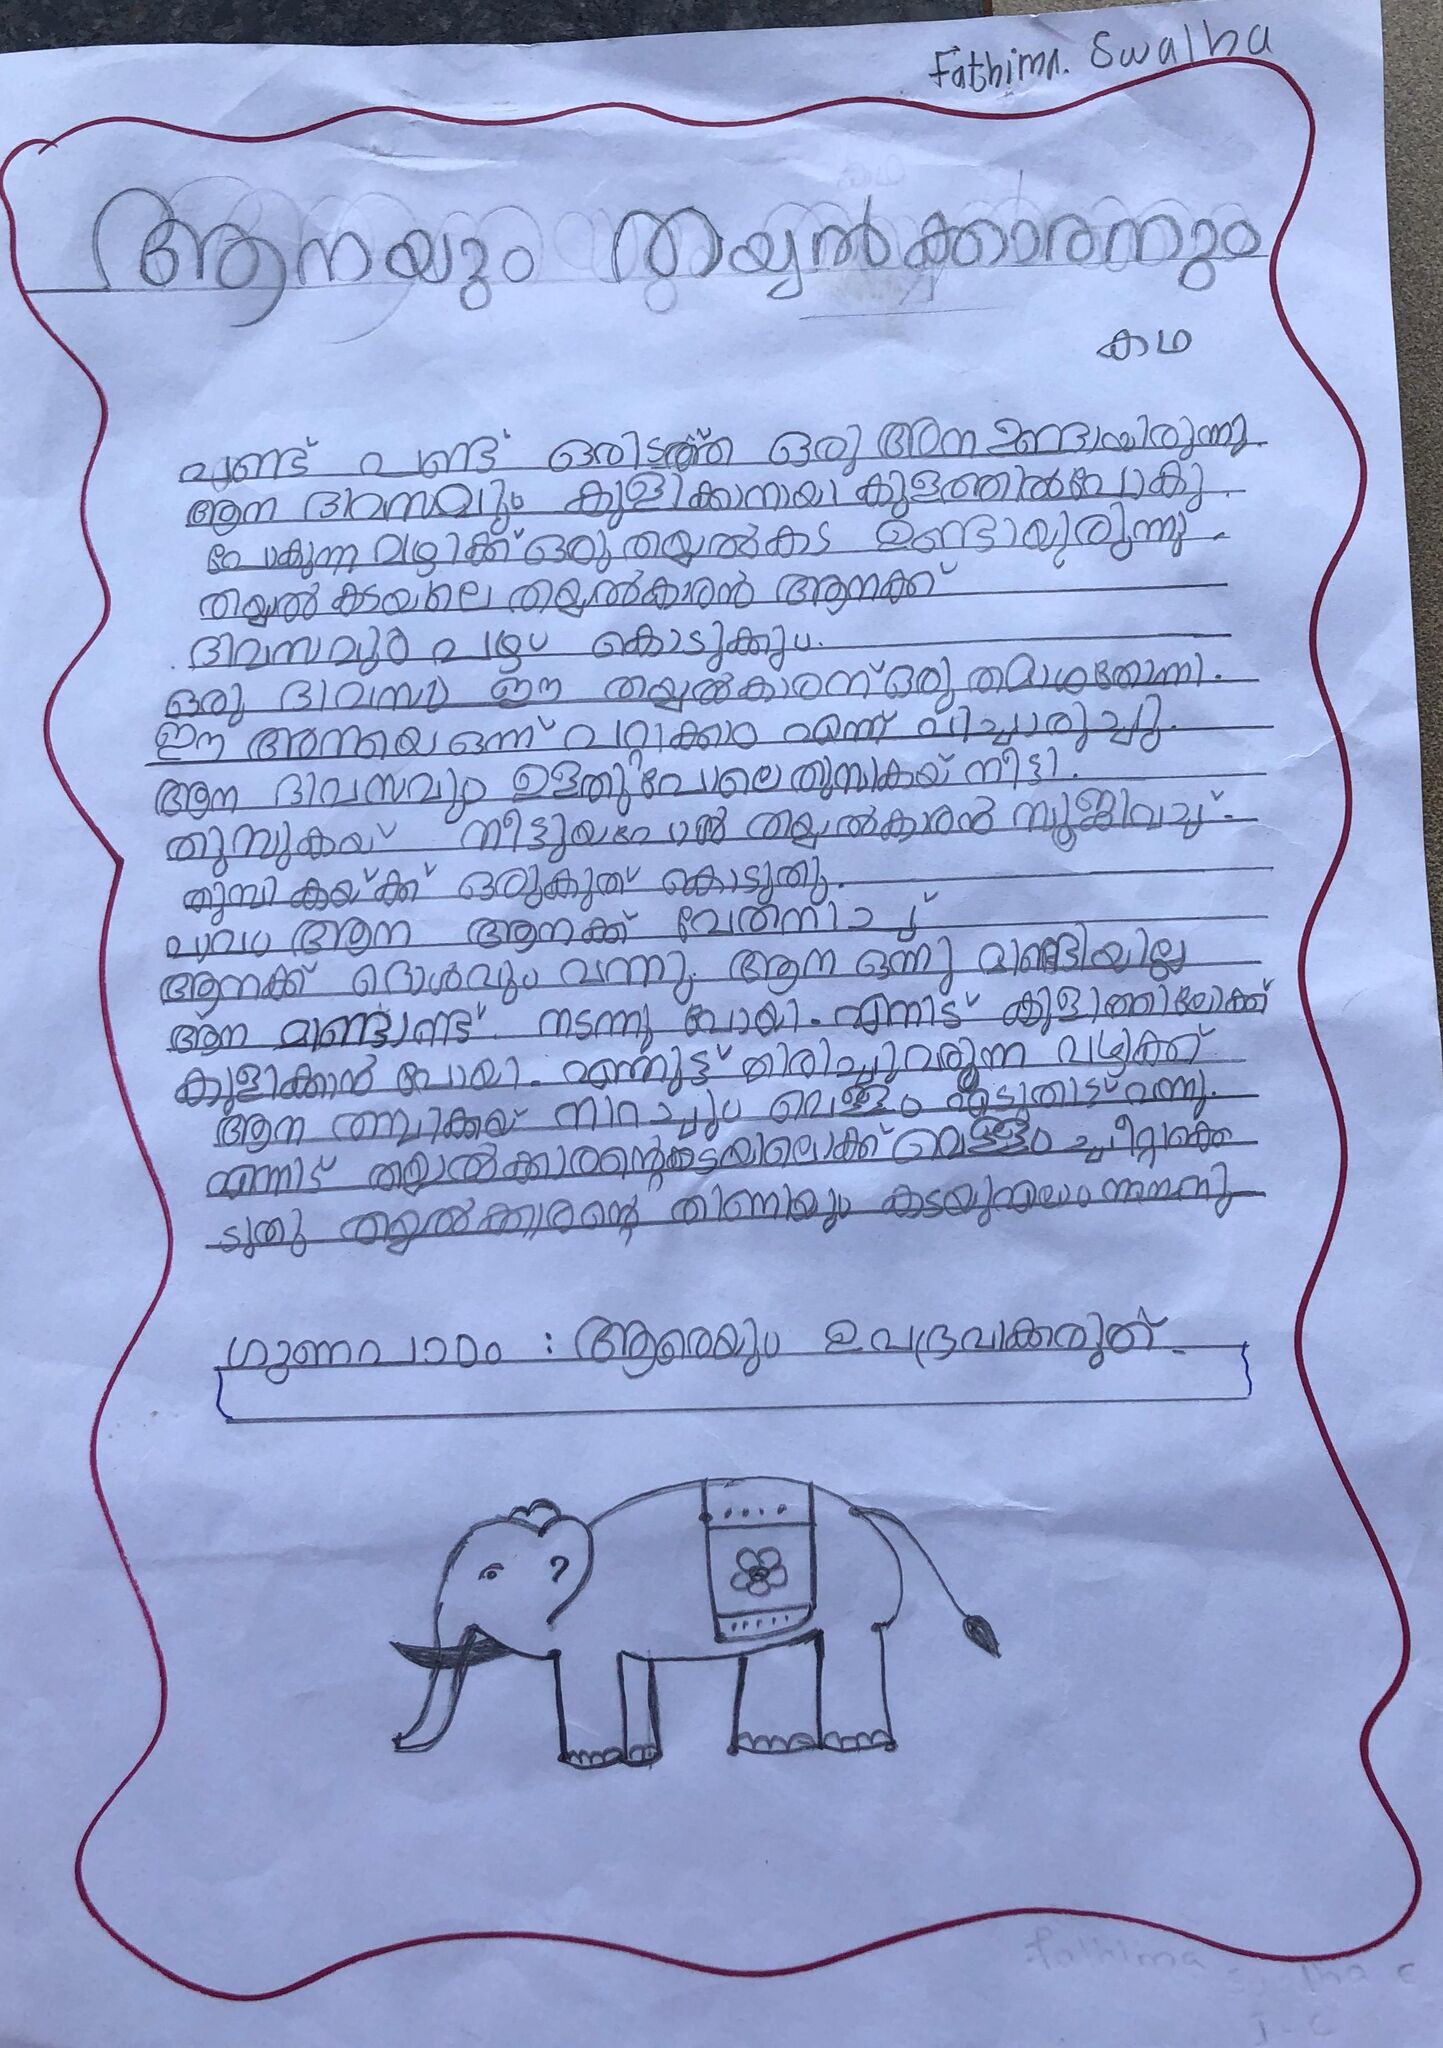 Fathima. Swalha
ആനയും തയ്യൽക്കാരനും
കഥ
പണ്ട് പണ്ട് ഒരിടത്ത് ഒരു ആന ഉണ്ടായിരുന്നു.
ആന ദിവസവും കുളിക്കാനായി കുളത്തിൽപോകു.
പോകുന്ന വഴിക്ക് ഒരു തയ്യൽകട ഉണ്ടായിരുന്നു.
തയ്യൽ കടയിലെ തയ്യൽകാരൻ ആനക്ക്
ദിവസവും പഴം കൊടുക്കും.
ഒരു ദിവസം ഈ തയ്യൽകാരന് ഒരു തമാശതോന്നി.
ഈ ആനയെ ഒന്ന് പറ്റിക്കാം എന്ന് വിച്ചാരിച്ചു.
ആന ദിവസവും ഉളതു പോലെ തുമ്പികയ് നീട്ടി.
തുമ്പുകയ് നീട്ടിയപോൾ തയ്യൽകാരൻ സൂജിവച്ച്.
തുമ്പി കയ്ക്ക് ഒരുകുത്ത് കൊടുത്തു.
പാവം ആന ആനക്ക് വേതനിച്ചു
ആനക്ക് ദെശ്യവും വന്നു. ആന ഒന്നു മിണ്ടിയില്ല
ആന മിണ്ടാണ്ട് നടന്നു പോയി. എന്നിട്ട് കുളിത്തിലേക്ക്
കുളിക്കാൻ പോയി. എന്നുട്ട് തിരിച്ചുവരുന്ന വഴിക്ക്
ആന തമ്പിക്കയ് നിറച്ചും വെള്ളം എടുതിട്ട് വന്നു.
എന്നിട് തയ്യൽക്കാരന്റെകടയിലൊക്ക് വെള്ളം ചീറ്റിക്കൊ
ടുതു തയ്യൽക്കാരന്റെ തിണിയും കടയുമെല്ലാം നനനു
ഗുണപാഠം : ആരെയും ഉപദ്രവിക്കരുത്.
fathima